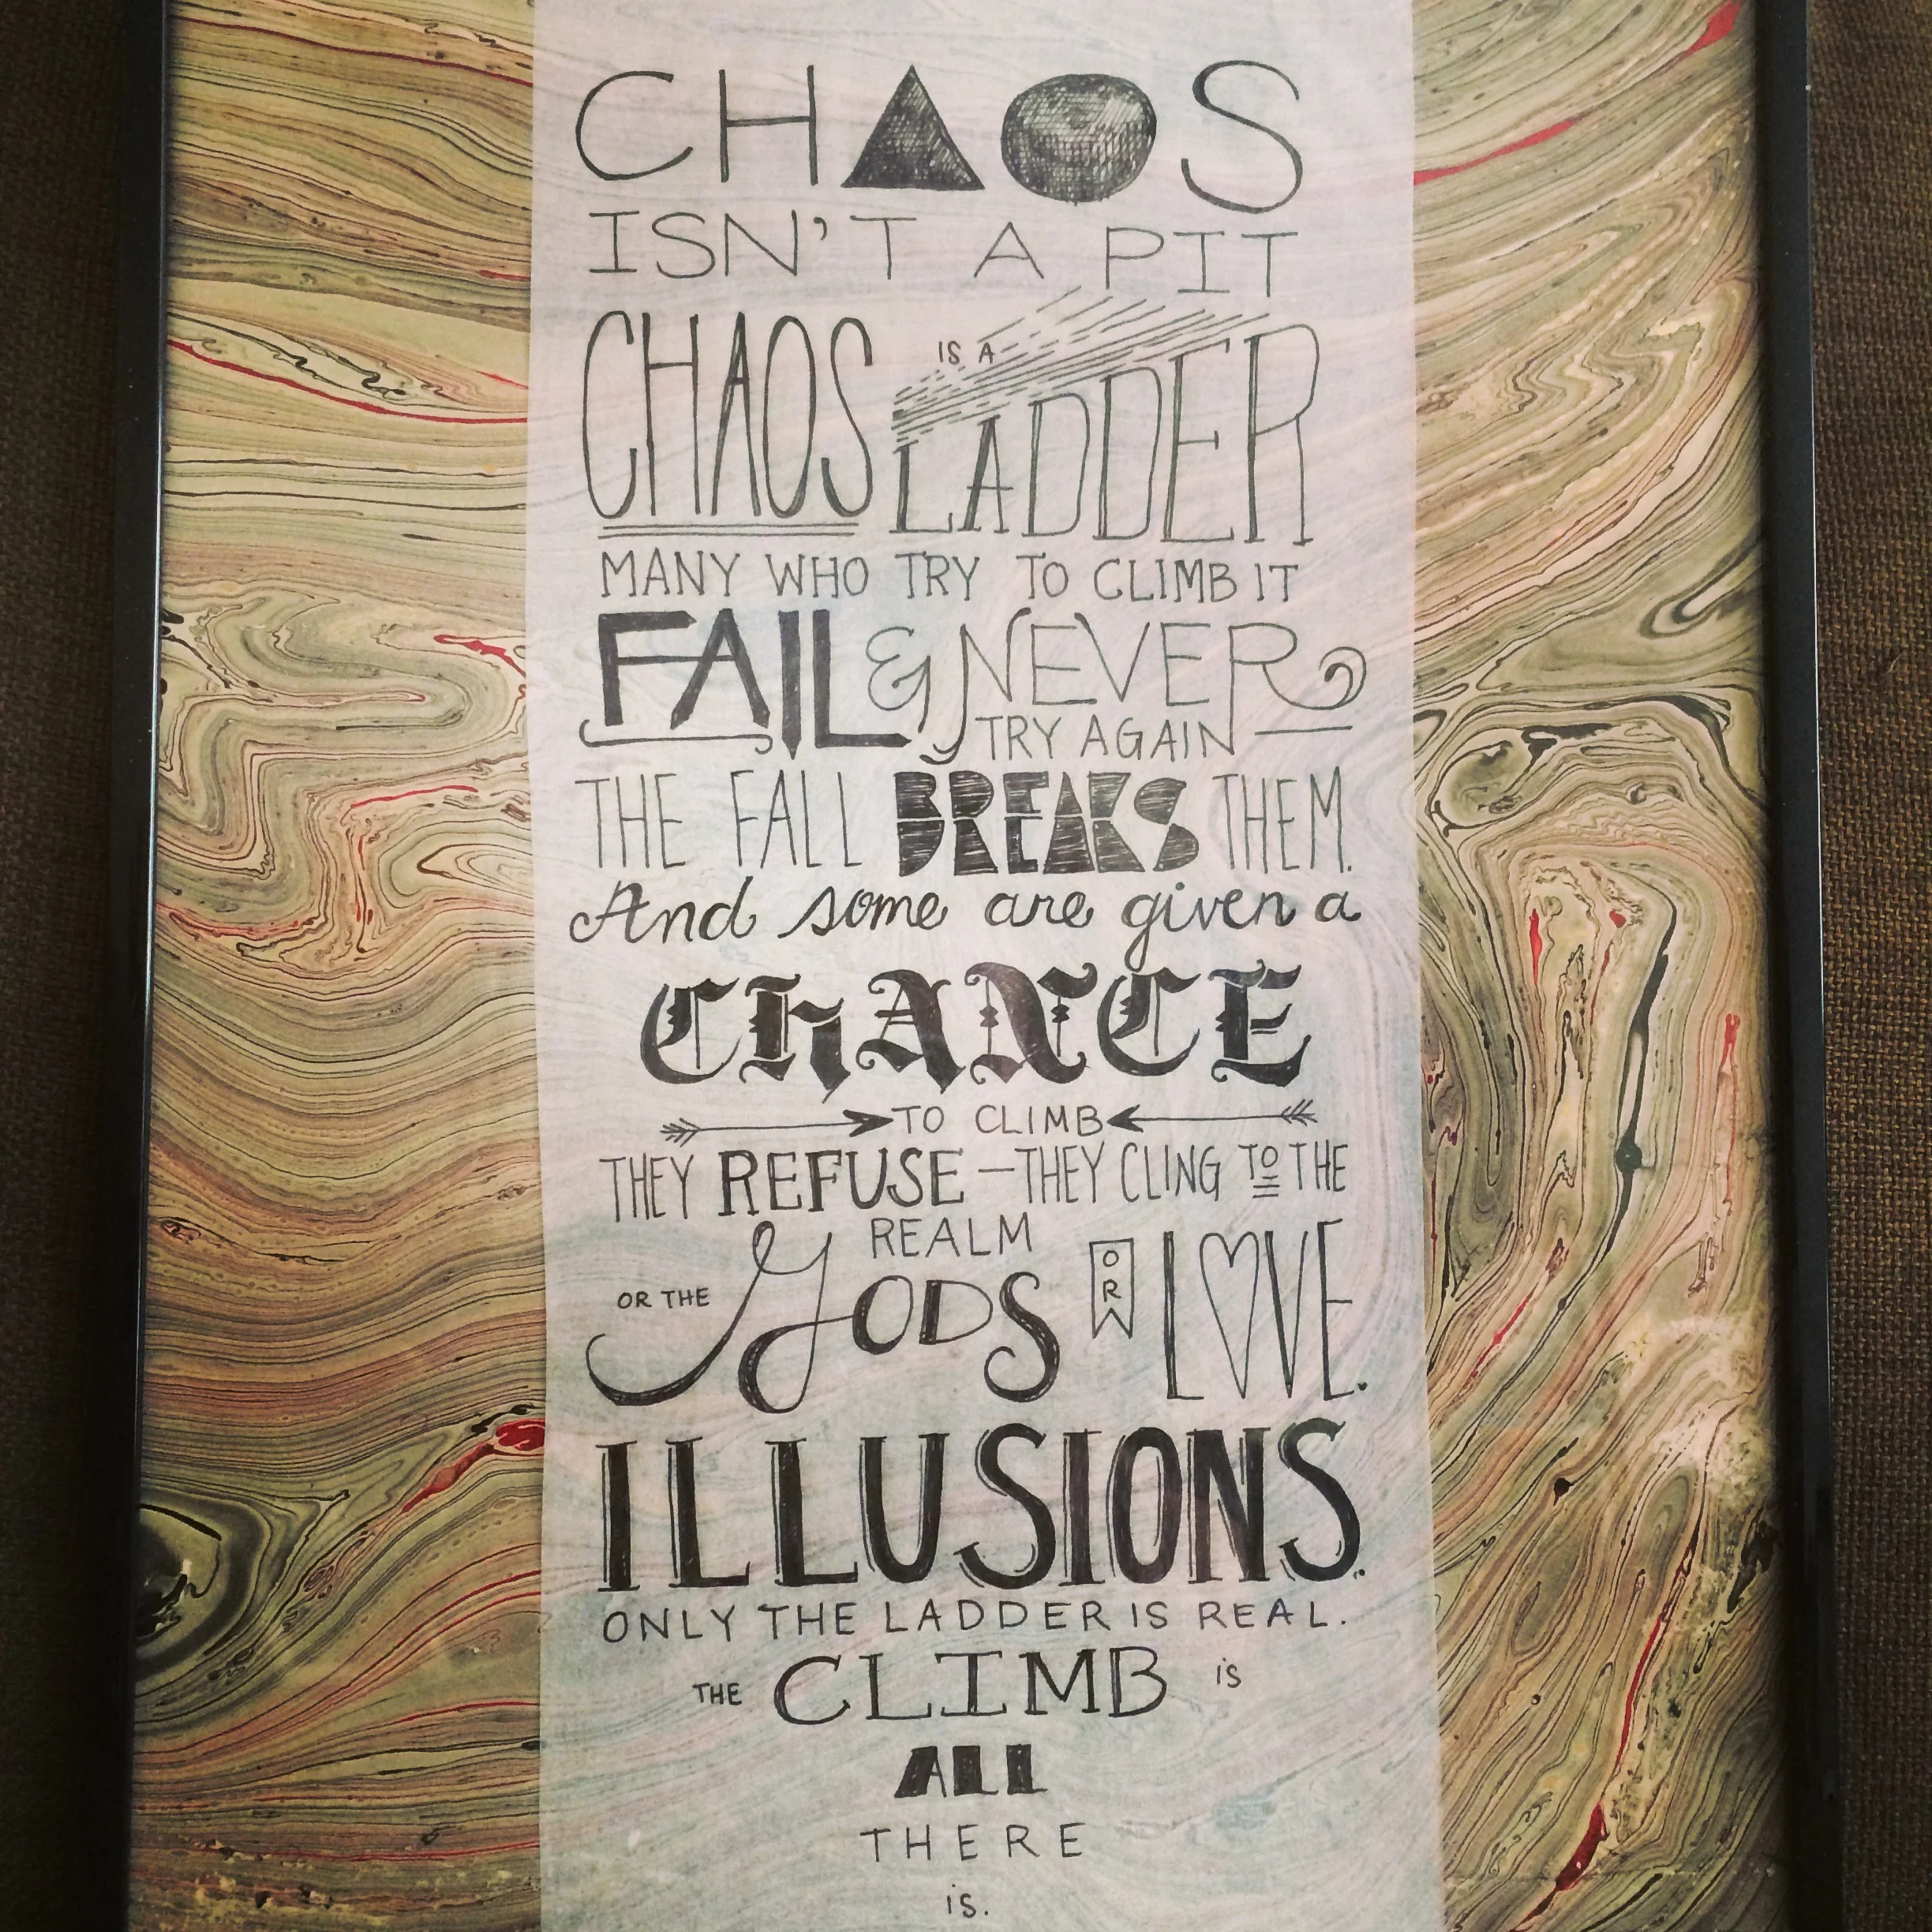 CHAOS
ISN'T A PIT
CHAOS IS A LADDER
MANY WHO TRY TO CLIMB IT
FAIL & NEVER
TRY AGAIN
THE FALL BREAKS THEM.
And some are given a
CHANCE
TO CLIMB
THEY REFUSE — THEY CLING TO THE
REALM
OR THE GODS OR LOVE.
ILLUSIONS.
ONLY THE LADDER IS REAL.
THE CLIMB IS
ALL
THERE
is.